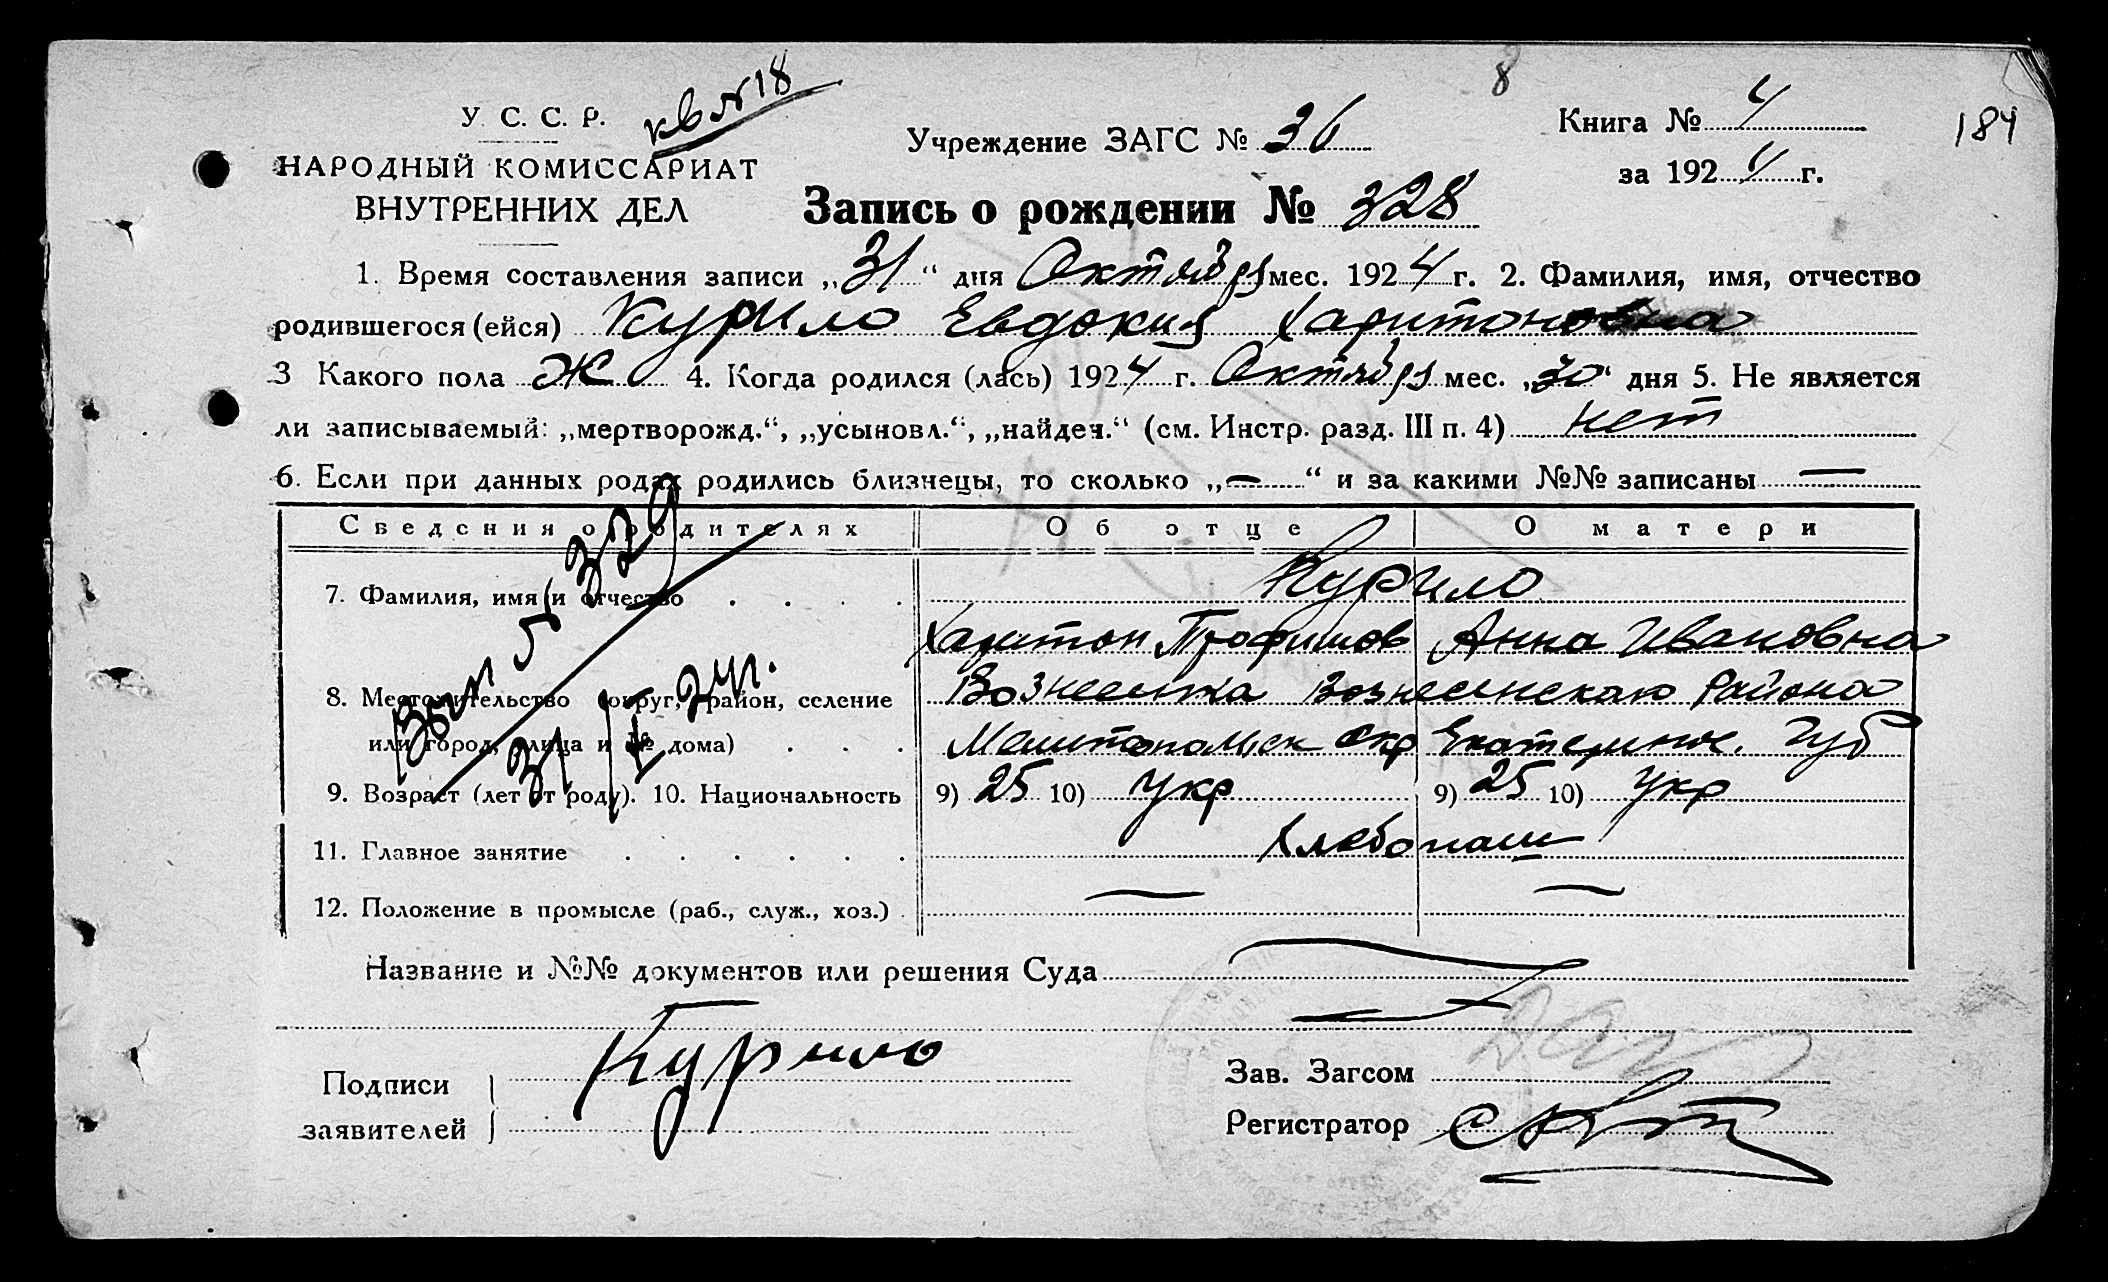 8
У. С. С. Р.
кв №18
НАРОДНЫЙ КОМИССАРИАТ
ВНУТРЕННИХ ДЕЛ
Учреждение ЗАГС № 36
Книга № 4
за 1924 г.
184
Запись о рождении № 328
1. Время составления записи „31“ дня Октября мес. 1924 г. 2. Фамилия, имя, отчество
родившегося (ейся) Курило Евдокия Харитоновна
3 Какого пола Ж 4. Когда родился (лась) 1924 г. Октября мес. „30“ дня 5. Не является
ли записываемый: „мертворожд.“, „усыновл.“, „найден.“ (см. Инстр. разд. III п. 4) нет
6. Если при данных родах родились близнецы, то сколько „—“ и за какими №№ записаны —
Сведения о родителях Об отце О матери
7. Фамилия, имя и отчество Курило
Харитон Трофимов Анна Ивановна
8. Местожительство (округ, район, селение Вознесенка Вознесенскаго района
или город, улица и № дома) Мелитопольск окр Екатеринос. Губ
9. Возраст (лет от роду). 10. Национальность 9) 25 10) укр 9) 25 10) укр
11. Главное занятие Хлебопаш
12. Положение в промысле (раб., служ., хоз.) — —
Вып № 329
31/X 24г.
Название и №№ документов или решения Суда
Подписи
заявителей
Курило
Зав. Загсом
Регистратор